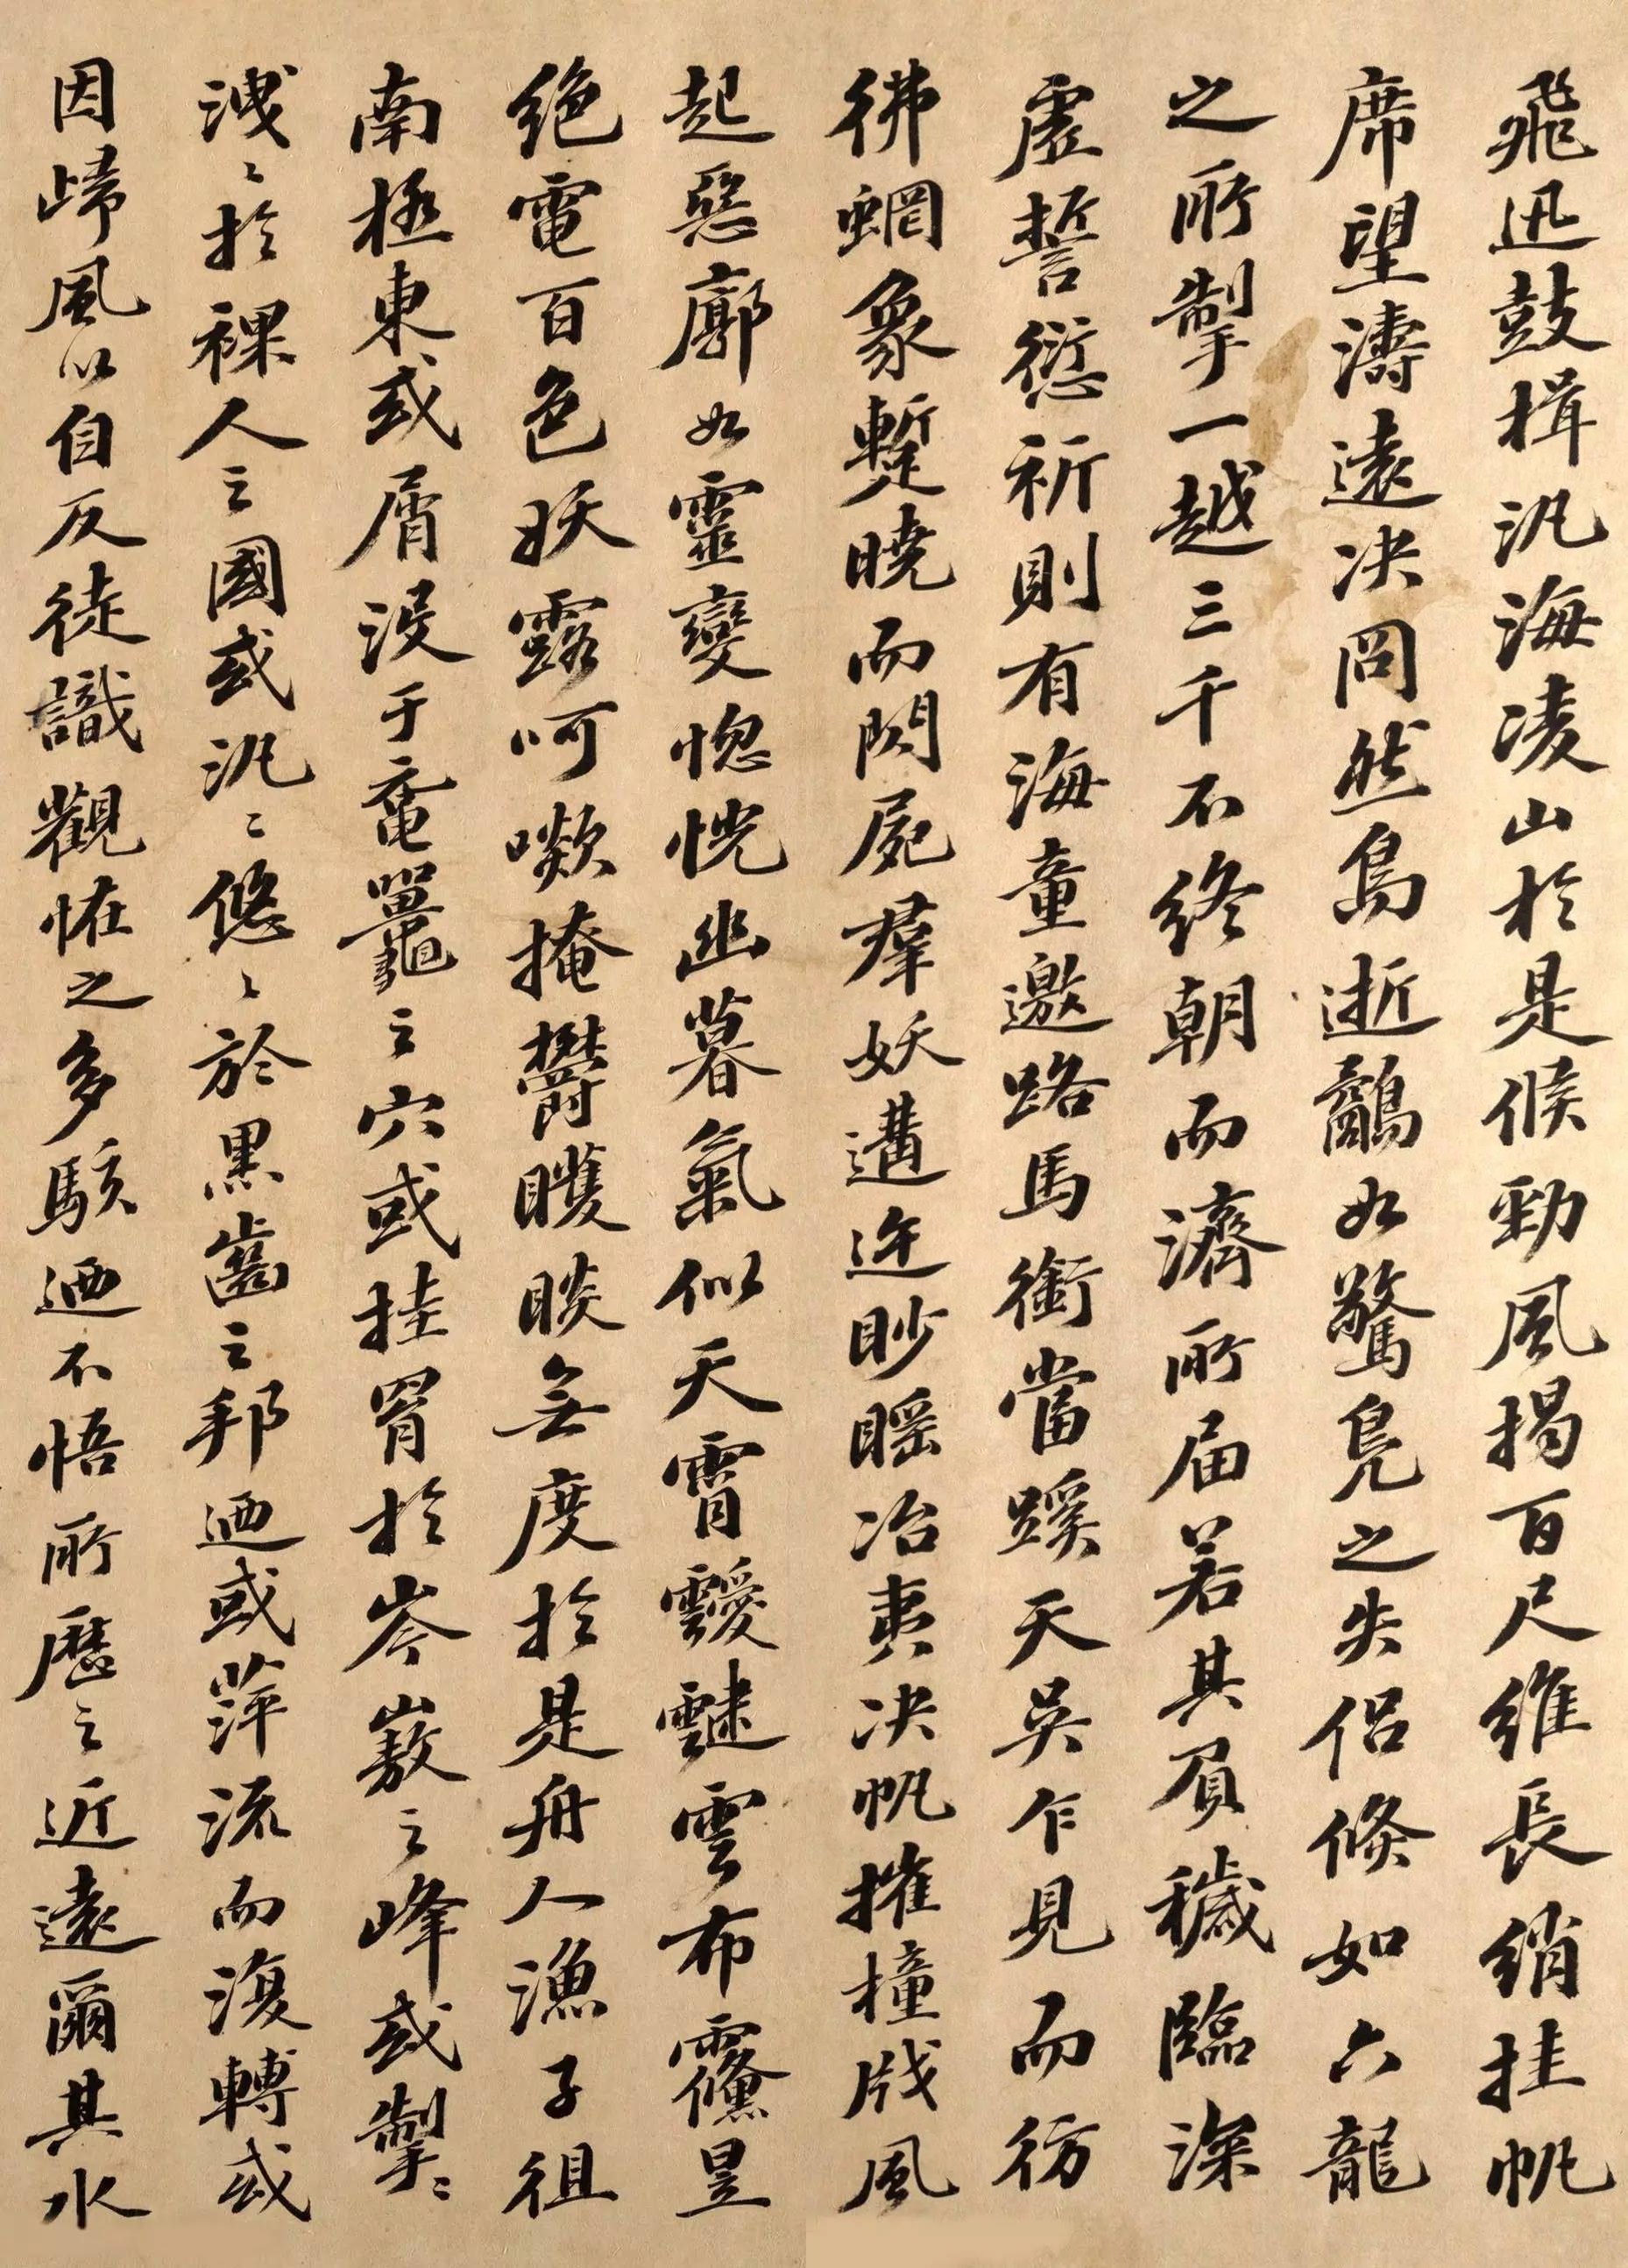 飛迅鼓揖汎海凌山於是候勁風揭百尺維長綃挂帆
席望濤遠決冏然鳥逝鷸如驚鳧之失侶倏如六龍
之所掣一越三千不終朝而濟所屆若其負穢臨深
虛誓愆祈則有海童邀路馬銜當蹊天吳乍見而彷
彿蝄象蹔曉而閃屍羣妖遘迕眇䁘冶夷決帆摧橦戕風
起惡廓如靈變惚恍幽暮氣似天霄靉靆雲布靉昱
絕電百色妖露呵㗵掩鬱矆睒無度於是舟人漁子徂
南極東或屑沒于黿鼉之穴或挂罥於岑嶅之峰或掣〻
洩〻於裸人之國或汎〻悠〻於黑齒之邦迺或萍流而浮轉或
因歸風以自反徒識觀怪之多駭迺不悟所歷之近遠爾其水